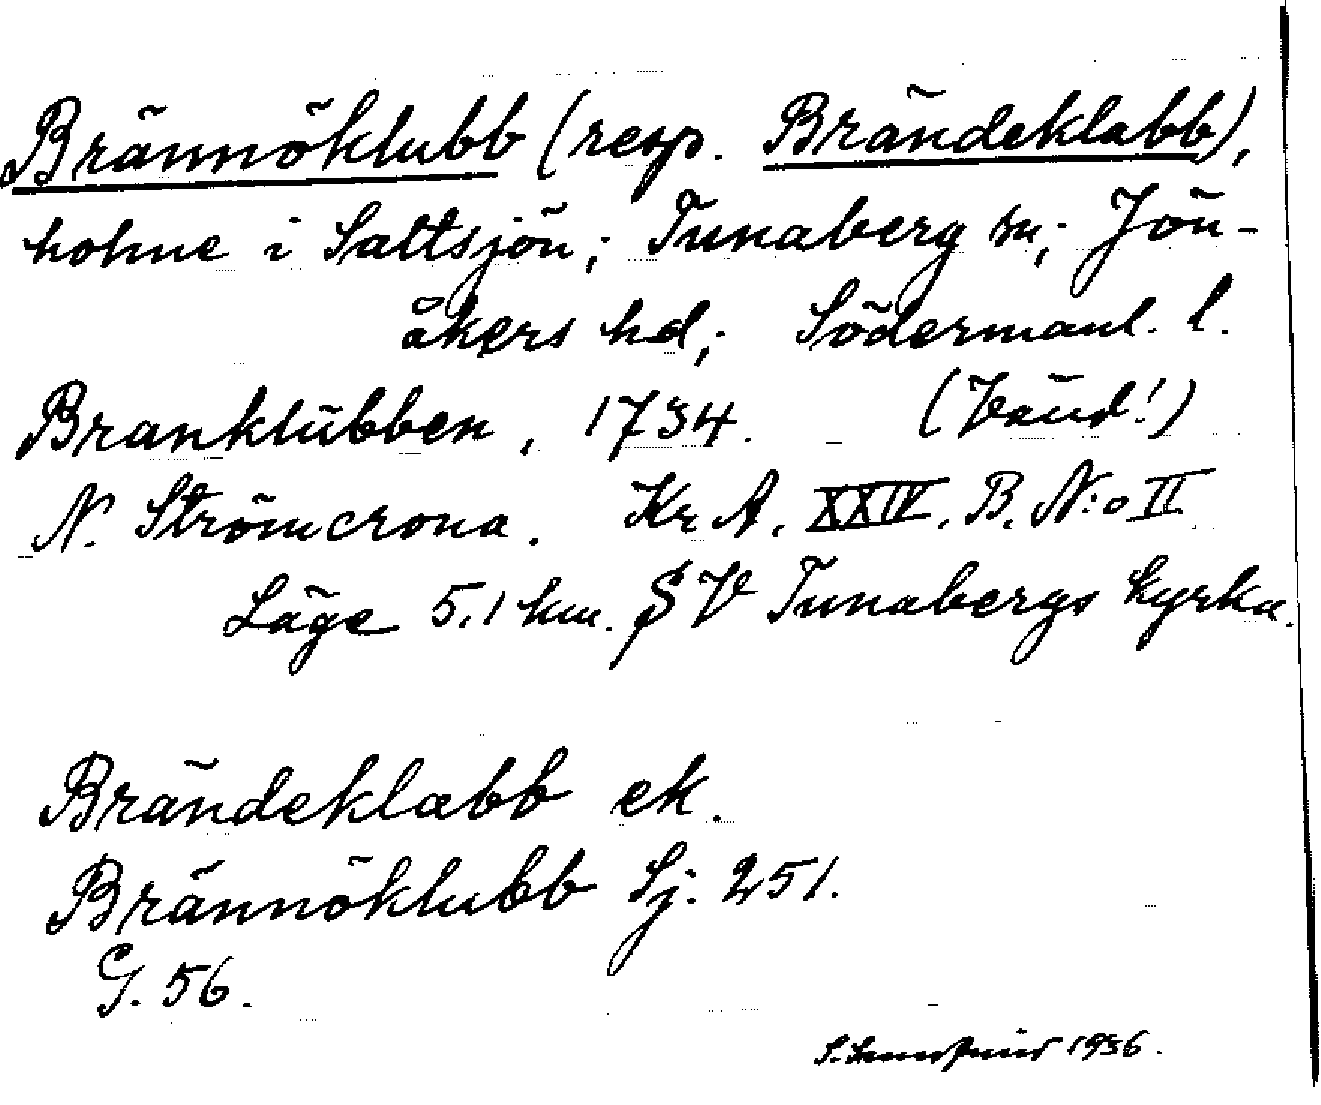 Brännöklubb (resp. Brändeklabb),
holme i Saltsjön; Tunaberg sn; Jön-
åkers hd; Södermanl. l.
Branklubben, 1734.
N. Strömcrona. Kr A. XXIV. B. N:o II
Läge 5.1 km. S V Tunabergs kyrka.
Brändeklabb ek.
Brännöklubb Sj. 251.
G. 56.
1936.